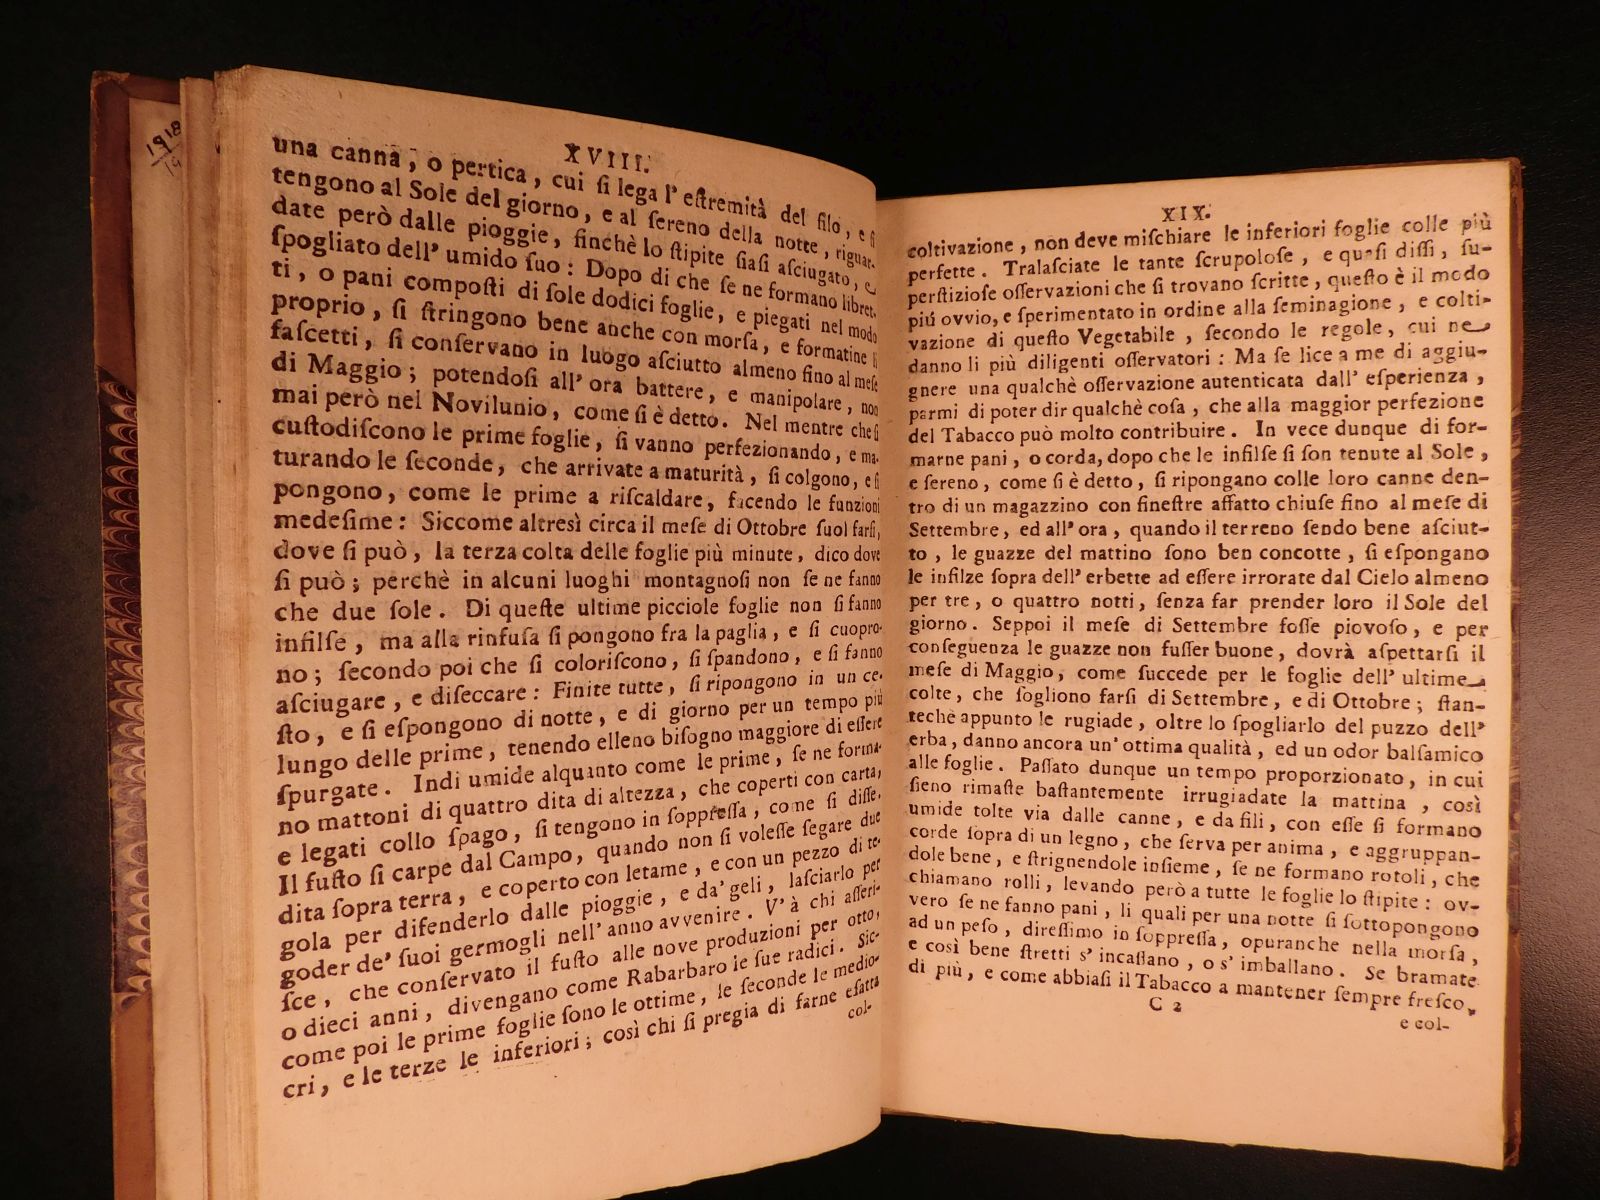 1918
XVIII.
una canna, o pertica, cui ſi lega l' eſtremità del filo, e ſi
tengono al Sole del giorno, e al ſereno della notte, riguar-
date però dalle pioggie, finchè lo ſtipite ſiaſi aſciugato, e
ſpogliato dell' umido ſuo: Dopo di che ſe ne formano libret-
ti, o pani compoſti di ſole dodici foglie, e piegati nel modo
proprio, ſi ſtringono bene anche con morſa, e formatine li
faſcetti, ſi conſervano in luogo aſciutto almeno fino al meſe
di Maggio; potendoſi all' ora battere, e manipolare, non
mai però nel Novilunio, come ſi è detto. Nel mentre che ſi
cuſtodiſcono le prime foglie, ſi vanno perfezionando, e ma-
turando le ſeconde, che arrivate a maturità, ſi colgono, e ſi
pongono, come le prime a riſcaldare, facendo le funzioni
medeſime: Siccome altresì circa il meſe di Ottobre ſuol farſi,
dove ſi può, la terza colta delle foglie più minute, dico dove
ſi può; perchè in alcuni luoghi montagnoſi non ſe ne fanno
che due ſole. Di queſte ultime picciole foglie non ſi fanno
infilſe, ma alla rinfuſa ſi pongono fra la paglia, e ſi cuopro-
no; ſecondo poi che ſi coloriſcono, ſi ſpandono, e ſi fanno
aſciugare, e diſeccare: Finite tutte, ſi ripongono in un ce-
ſto, e ſi eſpongono di notte, e di giorno per un tempo più
lungo delle prime, tenendo elleno biſogno maggiore di eſſere
ſpurgate. Indi umide alquanto come le prime, ſe ne forma-
no mattoni di quattro dita di altezza, che coperti con carta,
e legati collo ſpago, ſi tengono in ſoppreſſa, come ſi diſſe.
Il fuſto ſi carpe dal Campo, quando non ſi voleſſe ſegare due
dita ſopra terra, e coperto con letame, e con un pezzo di te-
gola per difenderlo dalle pioggie, e da' geli, laſciarlo per
goder de' ſuoi germogli nell' anno avvenire. V' à chi aſſeri-
ſce, che conſervato il fuſto alle nove produzioni per otto,
o dieci anni, divengano come Rabarbaro le ſue radici. Sic-
come poi le prime foglie ſono le ottime, le ſeconde le medio-
cri, e le terze le inferiori; così chi ſi pregia di farne eſatta
col-
XIX.
coltivazione, non deve miſchiare le inferiori foglie colle più
perfette. Tralaſciate le tante ſcrupoloſe, e quaſi diſſi, ſu-
perſtizioſe oſſervazioni che ſi trovano ſcritte, queſto è il modo
piú ovvio, e ſperimentato in ordine alla ſeminagione, e colti-
vazione di queſto Vegetabile, ſecondo le regole, cui ne
danno li più diligenti oſſervatori: Ma ſe lice a me di aggiu-
gnere una qualchè oſſervazione autenticata dall' eſperienza,
parmi di poter dir qualchè coſa, che alla maggior perfezione
del Tabacco può molto contribuire. In vece dunque di for-
marne pani, o corda, dopo che le infilſe ſi ſon tenute al Sole,
e ſereno, come ſi è detto, ſi ripongano colle loro canne den-
tro di un magazzino con fineſtre affatto chiuſe fino al meſe di
Settembre, ed all' ora, quando il terreno ſendo bene aſciut-
to, le guazze del mattino ſono ben concotte, ſi eſpongano
le infilze ſopra dell' erbette ad eſſere irrorate dal Cielo almeno
per tre, o quattro notti, ſenza far prender loro il Sole del
giorno. Seppoi il meſe di Settembre foſſe piovoſo, e per
conſeguenza le guazze non fuſſer buone, dovrà aſpettarſi il
meſe di Maggio, come ſuccede per le foglie dell' ultime
colte, che ſogliono farſi di Settembre, e di Ottobre; ſtan-
techè appunto le rugiade, oltre lo ſpogliarlo del puzzo dell'
erba, danno ancora un' ottima qualità, ed un odor balſamico
alle foglie. Paſſato dunque un tempo proporzionato, in cui
ſieno rimaſte baſtantemente irrugiadate la mattina, così
umide tolte via dalle canne, e da fili, con eſſe ſi formano
corde ſopra di un legno, che ſerva per anima, e aggruppan-
dole bene, e ſtrignendole inſieme, ſe ne formano rotoli, che
chiamano rolli, levando però a tutte le foglie lo ſtipite: ov-
vero ſe ne fanno pani, li quali per una notte ſi ſottopongono
ad un peſo, direſſimo in ſoppreſſa, opuranche nella morſa,
e così bene ſtretti s' incaſſano, o s' imballano. Se bramate
di più, e come abbiaſi il Tabacco a mantener ſempre freſco,
C 2
e col-